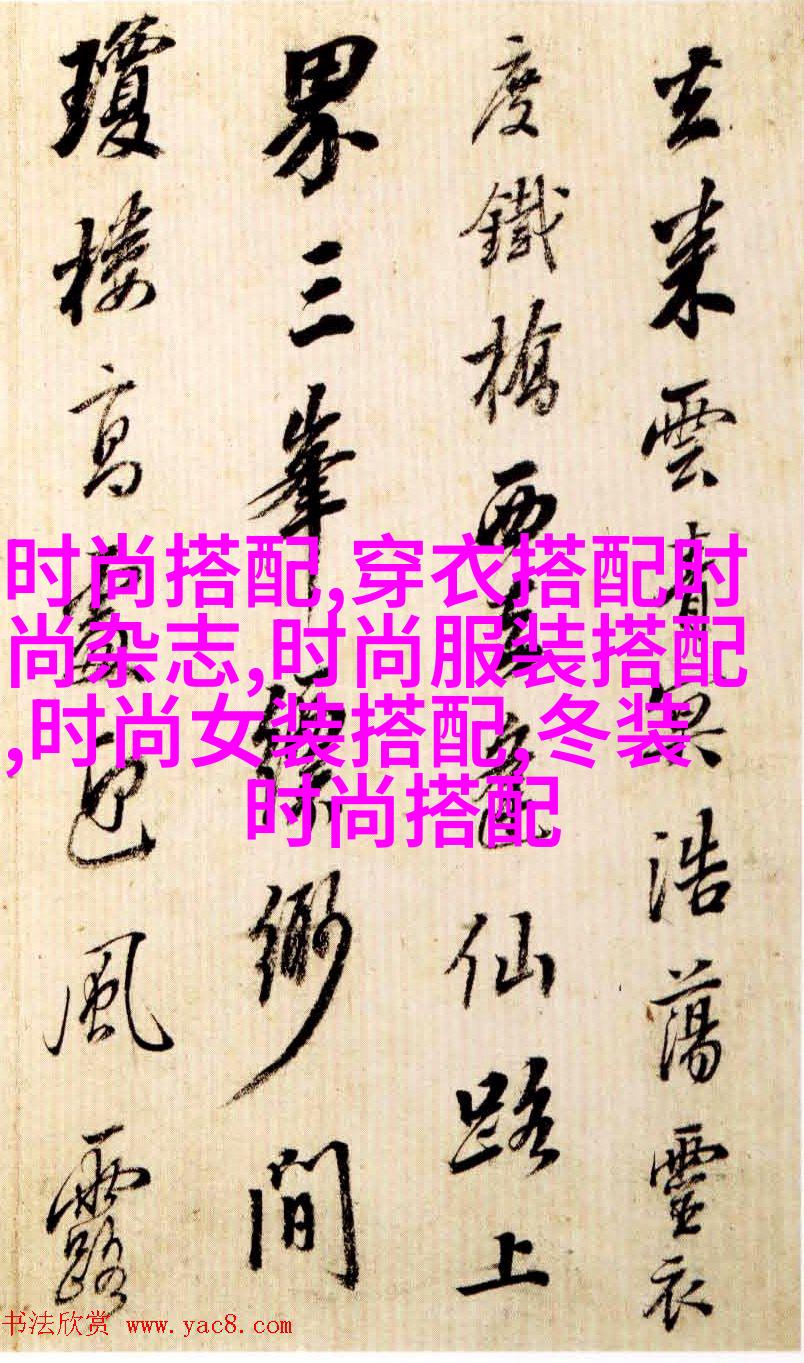 去来雲冥浩蕩靈衣
度鐵橋西仙路上
界三峯縹緲間
瓊樓高處迥風露
时尚搭配,穿衣搭配时
尚杂志,时尚服装搭配
,时尚女装搭配,冬装
时尚搭配
书法欣赏 www.yac8.com